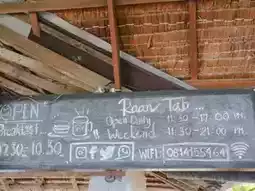 OPEN
Breakfast
07.30-10.30
Raanv Tab ...
Open Daily 11:30-17.00 pm
Weekend 11:30-21.00 pm
WIFI: 0814155464